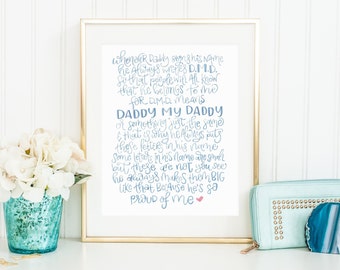 whenever Daddy signs his name
he always writes D.M.D.
so that people will all know
that he belongs to me
for D.M.D. means
DADDY MY DADDY
or something just the same
& that is why he always puts
these letters in his name
some letters in his name are small
but these are not you see
he always makes them BIG
like that because he's so
proud of me